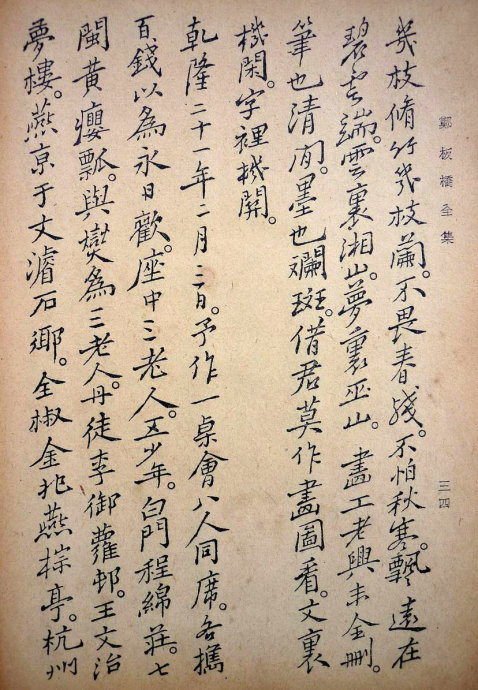 鄭板橋全集
三四
幾枝脩竹幾枝蘭。不畏春殘。不怕秋寒。飄遠在
碧雲端。雲裏湘山。夢裏巫山。畫工老興未全刪。
筆也清閒。墨也斕斑。借君莫作畫圖看。文裏
機關。字裡機關。
乾隆二十一年二月三日。予作一桌會八人同席。各攜
百錢以為永日歡。座中三老人。五少年。白門程綿莊。七
閩黃癭瓢。與燮為三老人。丹徒李御蘿邨。王文治
夢樓。燕京于文濬石鄉。全椒金兆燕棕亭。杭州